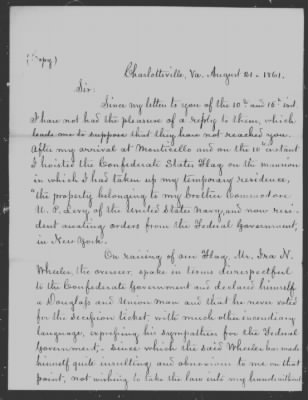 (Copy)
Charlottville, Va. August 21. 1861.
Sir:
Since my letter to you of the 10th and 15th inst.
I have not had the pleasure of a reply to them, which
leads me to suppose that they have not reached you.
After my arrival at Monticello and on the 10th instant
I hoisted the Confederate States Flag on the mansion
in which I had taken up my temporary residence,
"the property belonging to my brother Commodore
U. P. Levy of the United States Navy, and now resi-
dent awaiting orders from the Federal Government,
in New York.
On raising of our Flag, Mr. Ira N.
Wheeler the overseer, spoke in terms disrespectful
to the Confederate Government and declared himself
a Douglass and Union man and that he never voted
for the secession ticket, with much other incendiary
language, expressing his sympathies for the Federal
Government; - since which the said Wheeler has made
himself quite insulting and obnoxious to me on that
point, not wishing to take the law into my hands without